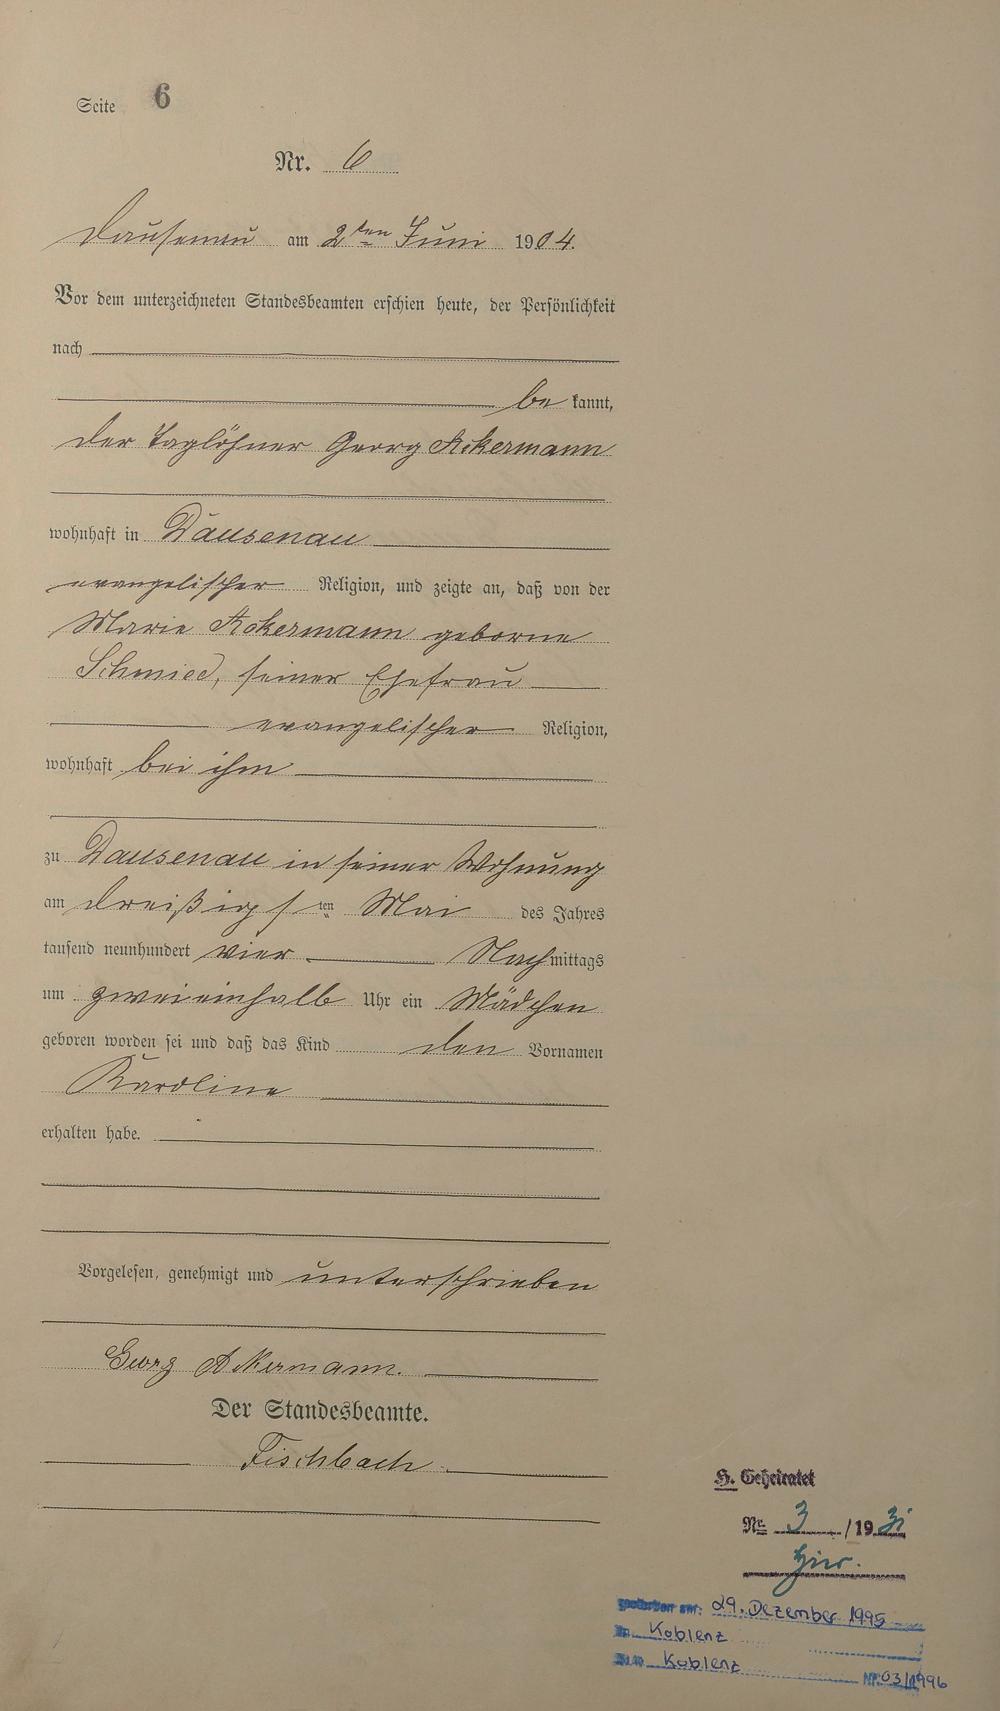 Seite 6
Nr. 6
Dausenau am 2ten Juni 1904.
Vor dem unterzeichneten Standesbeamten erschien heute, der Persönlichkeit
nach
be kannt,
der Taglöhner Georg Ackermann
wohnhaft in Dausenau
evangelischer Religion, und zeigte an, daß von der
Marie Ackermann geborne
Schmied, seiner Ehefrau
evangelischer Religion,
wohnhaft bei ihm
zu Dausenau in seiner Wohnung
am dreißigsten Mai des Jahres
tausend neunhundert vier Nachmittags
um zweieinhalb Uhr ein Mädchen
geboren worden sei und daß das Kind den Vornamen
Karoline
erhalten habe.
Vorgelesen, genehmigt und unterschrieben
Georg Ackermann.
Der Standesbeamte.
Fischbach
H. Geheiratet
Nr. 3 /1931
hier.
gestorben am: 29. Dezember 1995
in Koblenz
St.A. Koblenz Nr. 03/1996